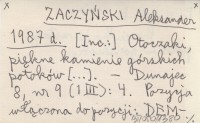 ZACZYŃSKI Aleksander
1987 d. [Inc.:] Otoczaki,
piękne kamienie górskich
potoków [...]. – Dunajec
8, nr 9 (1 III): 4. Pozycja
włączona do pozycji: DEN-